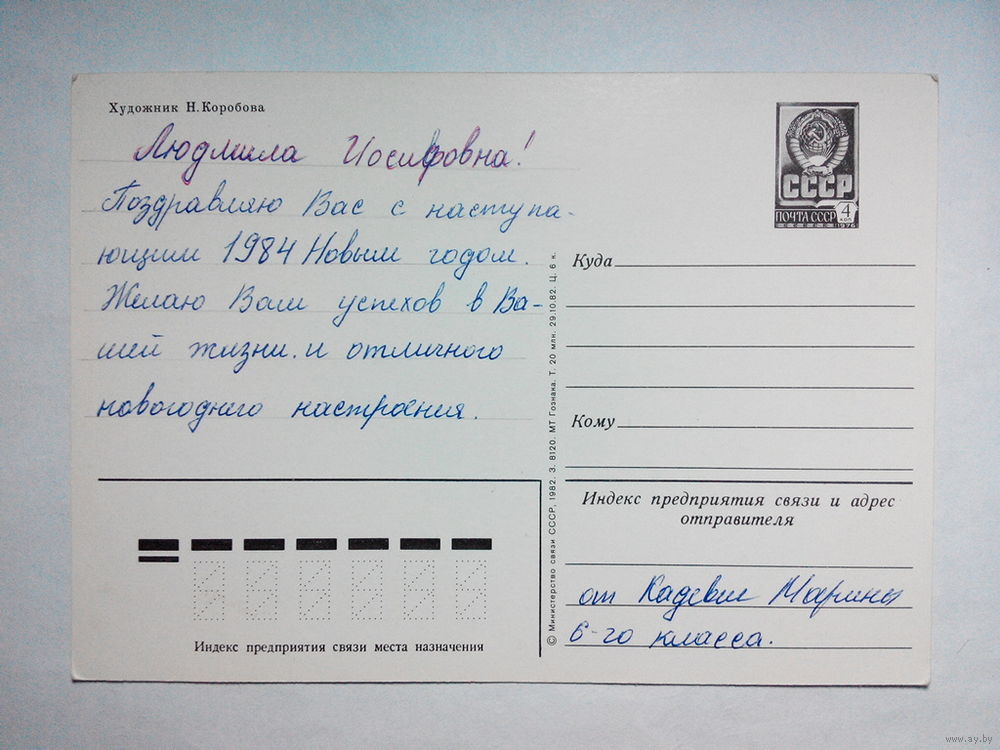 Художник Н. Коробова
Людмила Иосифовна!
Поздравляю Вас с наступа-
ющим 1984 Новым годом.
Желаю Вам успехов в Ва-
шей жизни и отличного
новогоднего настроения.
СССР
ПОЧТА СССР
4
коп
1976
Куда
Кому
Индекс предприятия связи и адрес
отправителя
от Кадевич Марины
6-го класса.
Индекс предприятия связи места назначения
© Министерство связи СССР, 1982. З. 8120. МТ Гознака. Т. 20 млн. 29.10.82. Ц. 6 к.
www.ay.by